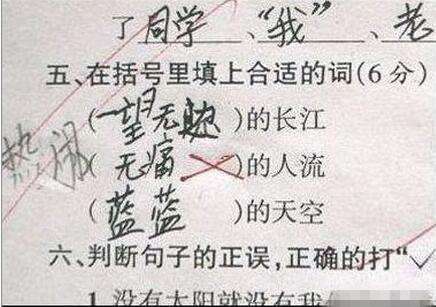 了同学、“我”、老
五、在括号里填上合适的词(6分)
(一望无边)的长江
热闹
(无痛)的人流
(蓝蓝)的天空
六、判断句子的正误,正确的打“✓
1.没有太阳就没有我